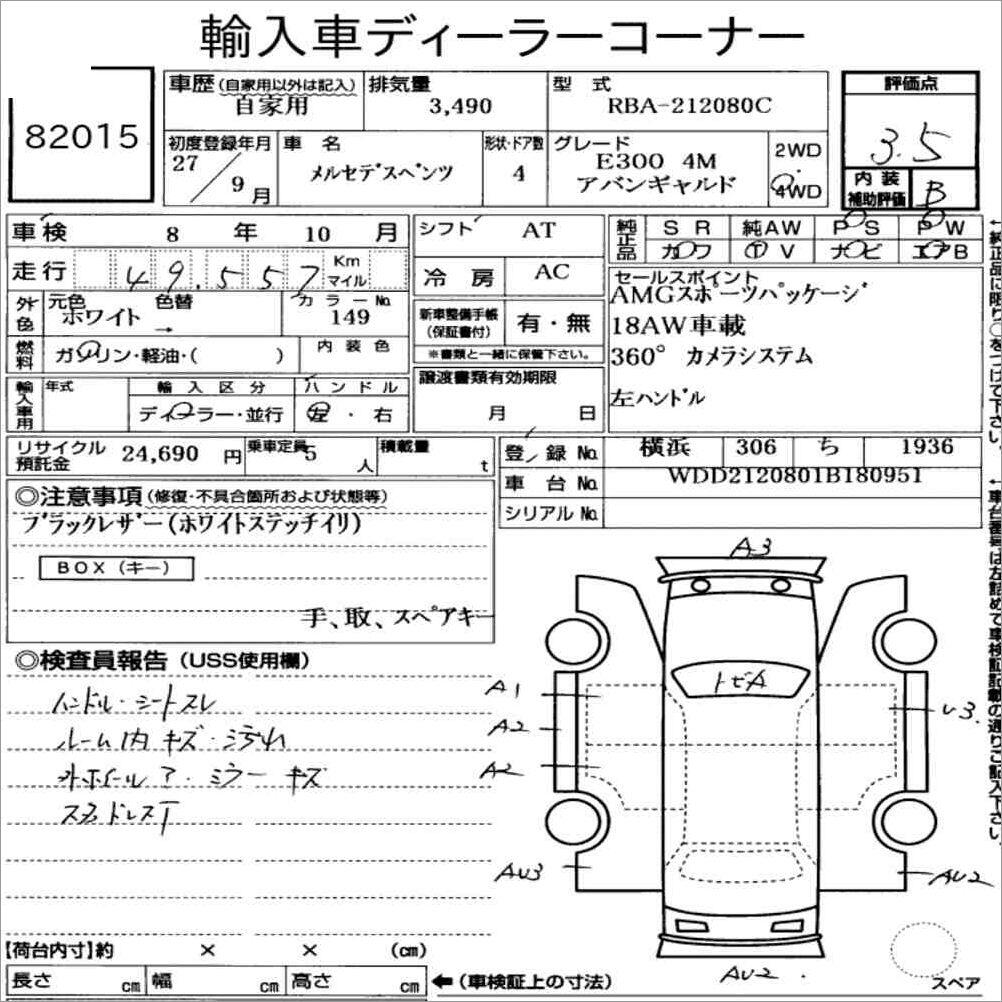 輸入車ディーラーコーナー
82015
車歴 (自家用以外は記入) 自家用
排気量 3,490
型式 RBA-212080C
評価点 3.5
初度登録年月 27/9月
車名 メルセデスベンツ
形状・ドア数 4
グレード E300 4M
アバンギャルド
2WD
4WD
内装補助評価 B
車検 8年 10月
走行 49,557 Km マイル
外色 元色 ホワイト 色替 → カラーNo. 149
燃料 ガソリン・軽油・( ) 内装色
輸入車用 年式 輸入区分 ディーラー・並行 ハンドル 左・右
シフト AT
冷房 AC
新車整備手帳(保証書付) 有・無
※書類と一緒に保管下さい。
譲渡書類有効期限
月 日
純正品 SR 純AW PS PW
カワ TV ナビ エアB
セールスポイント
AMGスポーツパッケージ
18AW車載
360° カメラシステム
左ハンドル
リサイクル預託金 24,690円 乗車定員 5人 積載量 t
登録No. 横浜 306 ち 1936
車台No. WDD2120801B180951
シリアルNo.
◎注意事項(修復・不具合箇所および状態等)
ブラックレザー(ホワイトステッチイリ)
BOX (キー)
手、取、スペアキー
◎検査員報告(USS使用欄)
ハンドル・シートスレ
ルーム内キズ・汚れ
外ホイール ア・ミラーキズ
スタッドレスT
A3
トビA
A1
A2
A2
U3
AU3
AU2
AU2
スペア
【荷台内寸】約 × × (cm)
長さ cm 幅 cm 高さ cm ←(車検証上の寸法)
←純正品に限り○をつけて下さい。
←車台番号は左詰めで車検証記載の通りご記入下さい。